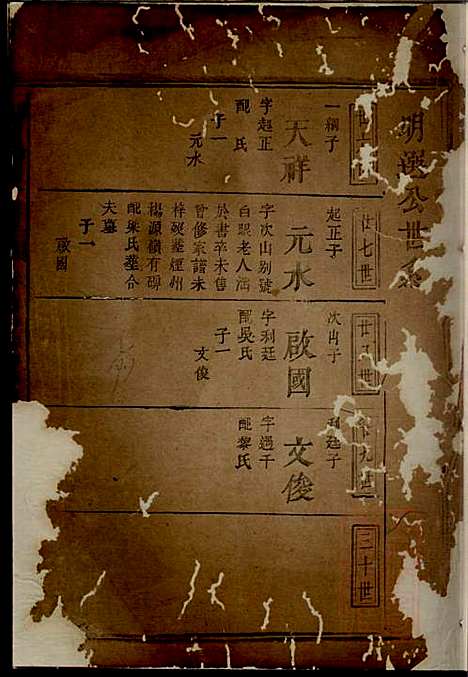 明漢公世系
廿六世
一綱子
天祥
字起正
配 氏
子一
元水
廿七世
起正子
元水
字次山别號
白眼老人
於書卒未售
曾修家譜未
梓歿葬煙州
楊源嶺有碑
配梁氏葬合
夫墓
子一
啟國
廿八世
次山子
啟國
字利廷
配吳氏
子一
文俊
廿九世
利廷子
文俊
字遇千
配黎氏
三十世